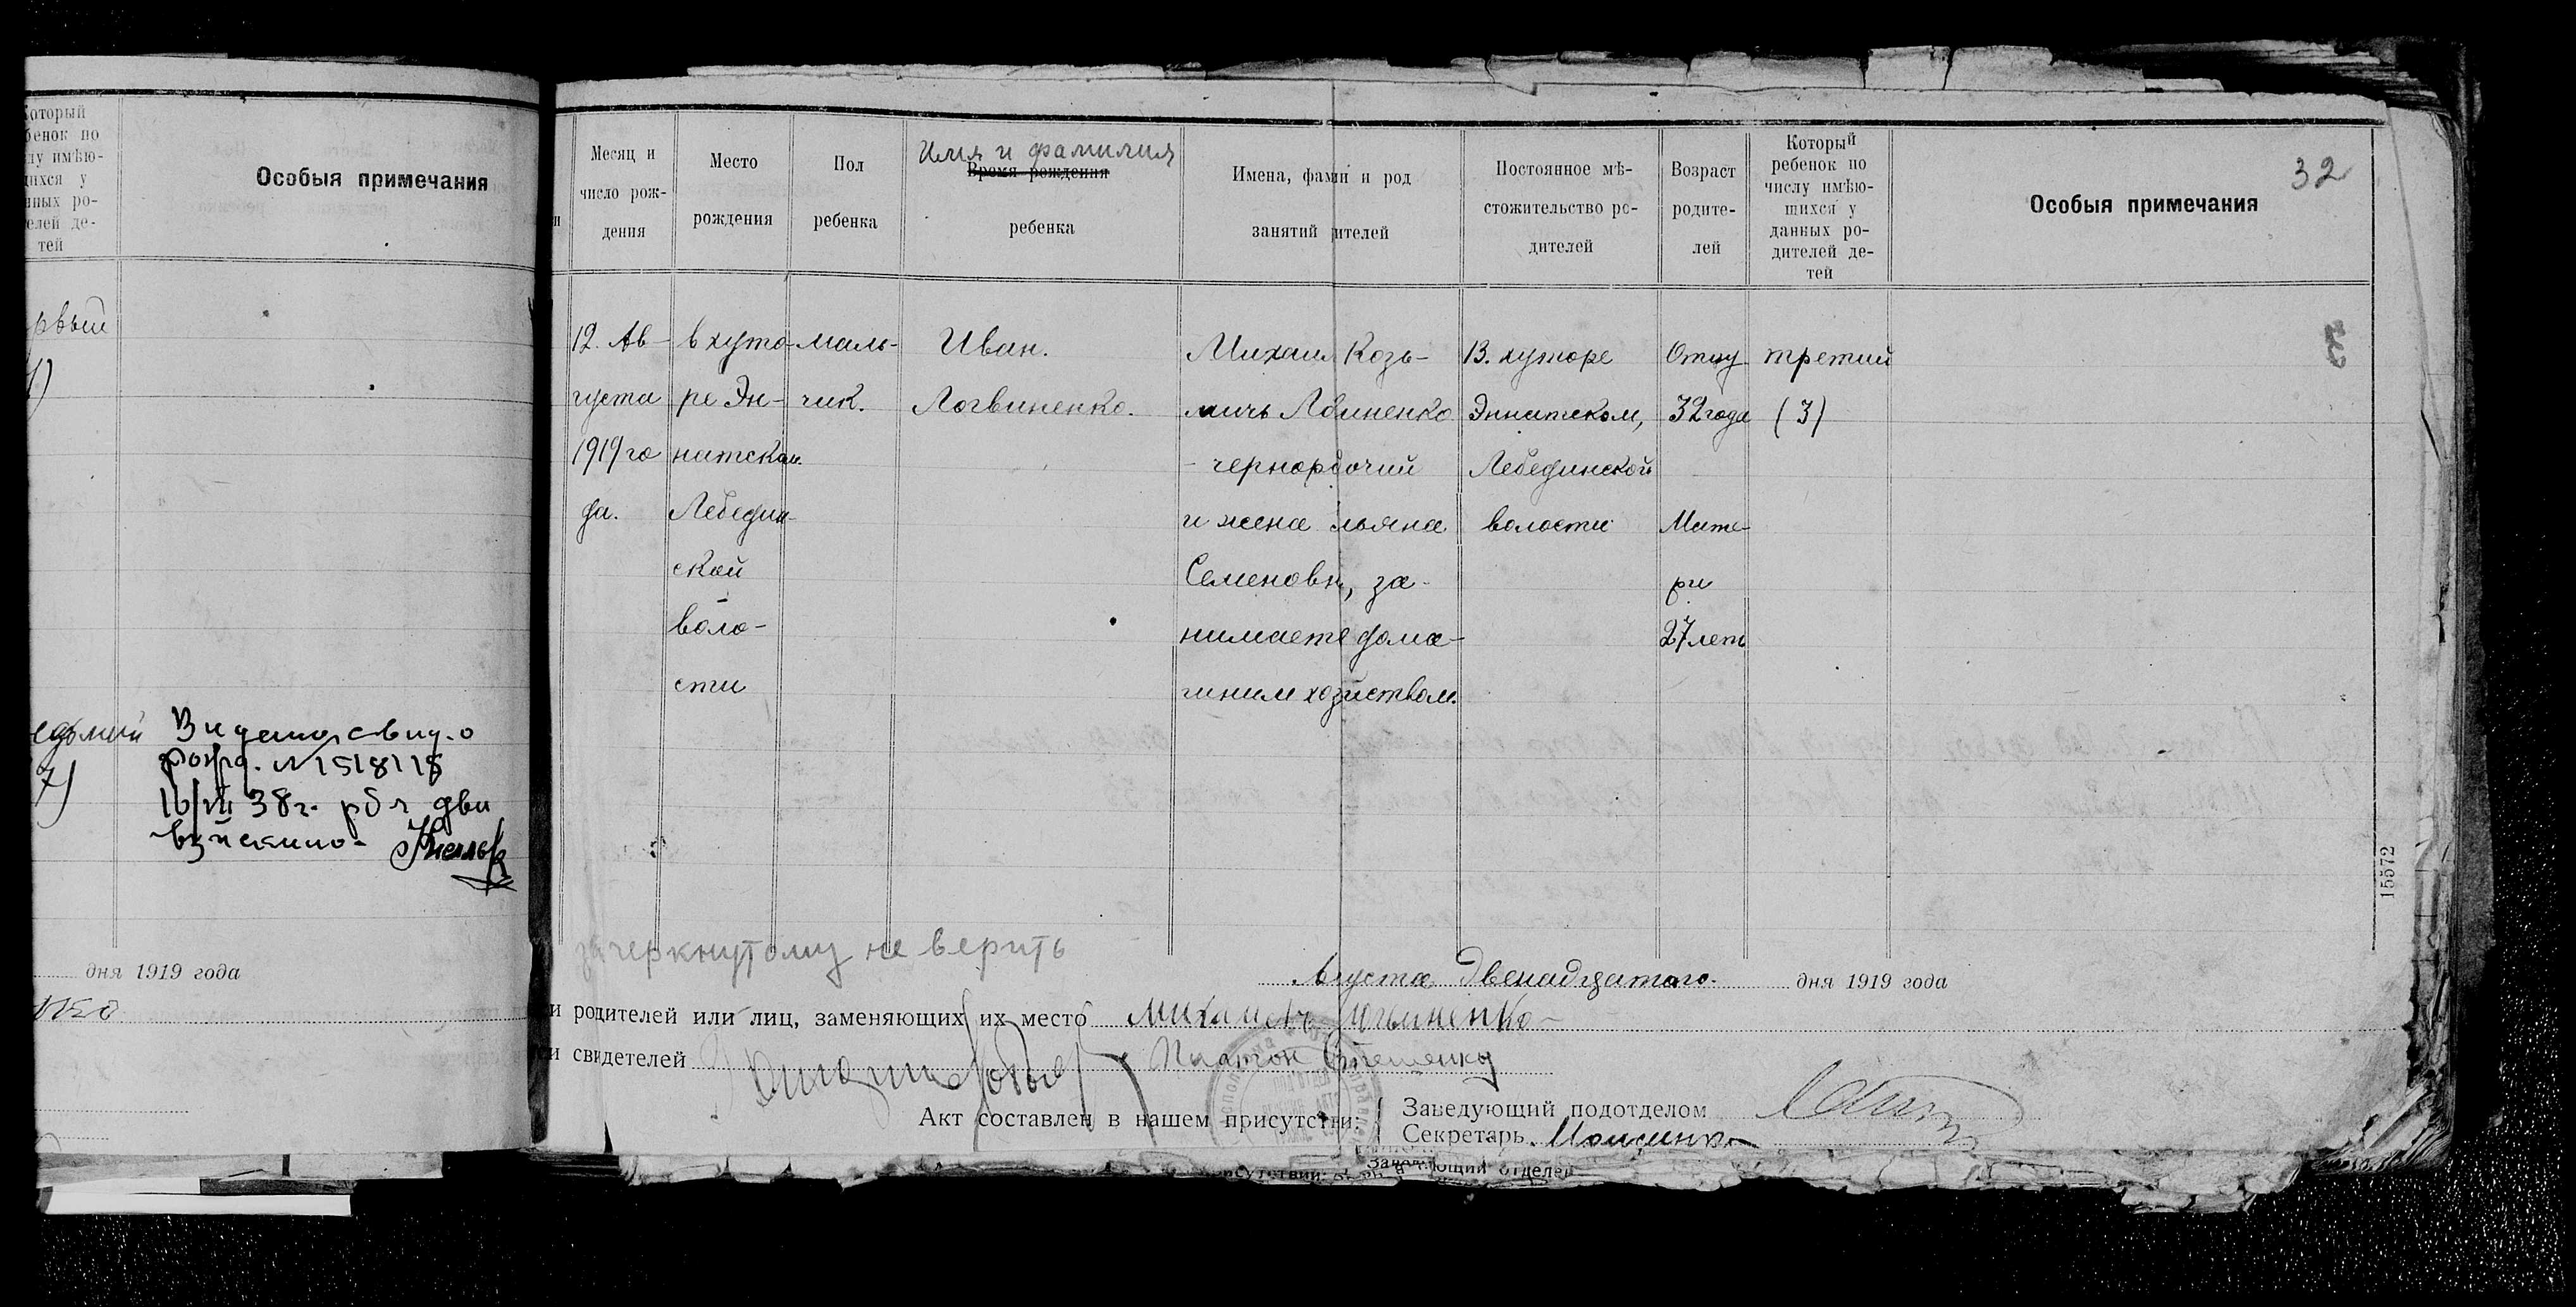 Который
бенок по
лу имѣю-
щихся у
нных ро-
елей де-
тей
Особыя примечания
рвый
Выдано свид. о
рожд. № 1518115
38г.
дня 1919 года
Месяц и
число рож-
дения
Место
рождения
Пол
ребенка
Имя и фамилия
Время рождения
ребенка
Имена, фами и род
занятий ителей
Постоянное мѣ-
стожительство ро-
дителей
Возраст
родите-
лей
Который
ребенок по
числу имѣю-
щихся у
данных ро-
дителей де-
тей
Особыя примечания
32
12. Ав-
густа
1919 го
да.
в хуто-
ре Эн-
натском
Лебедин-
ской
воло-
сти
маль-
чик.
Иван.
Логвиненко.
Михаил Козь-
мичь Лвиненко
- чернорбочий
и жена льяна
Семеновн, за-
нимаетя дома-
шним хозйством.
В. хуторе
Эннатском,
Лебединской
волости
Отцу
32 года
Мате-
ри
27 лет
третий
(3)
15572
зачеркнутому не верить
Августа Двенадцатого. дня 1919 года
и родителей или лиц, заменяющих их место Михаилъ
и свидетелей Платон
Акт составлен в нашем присутстви:
Заведующий подотделом
Секретарь